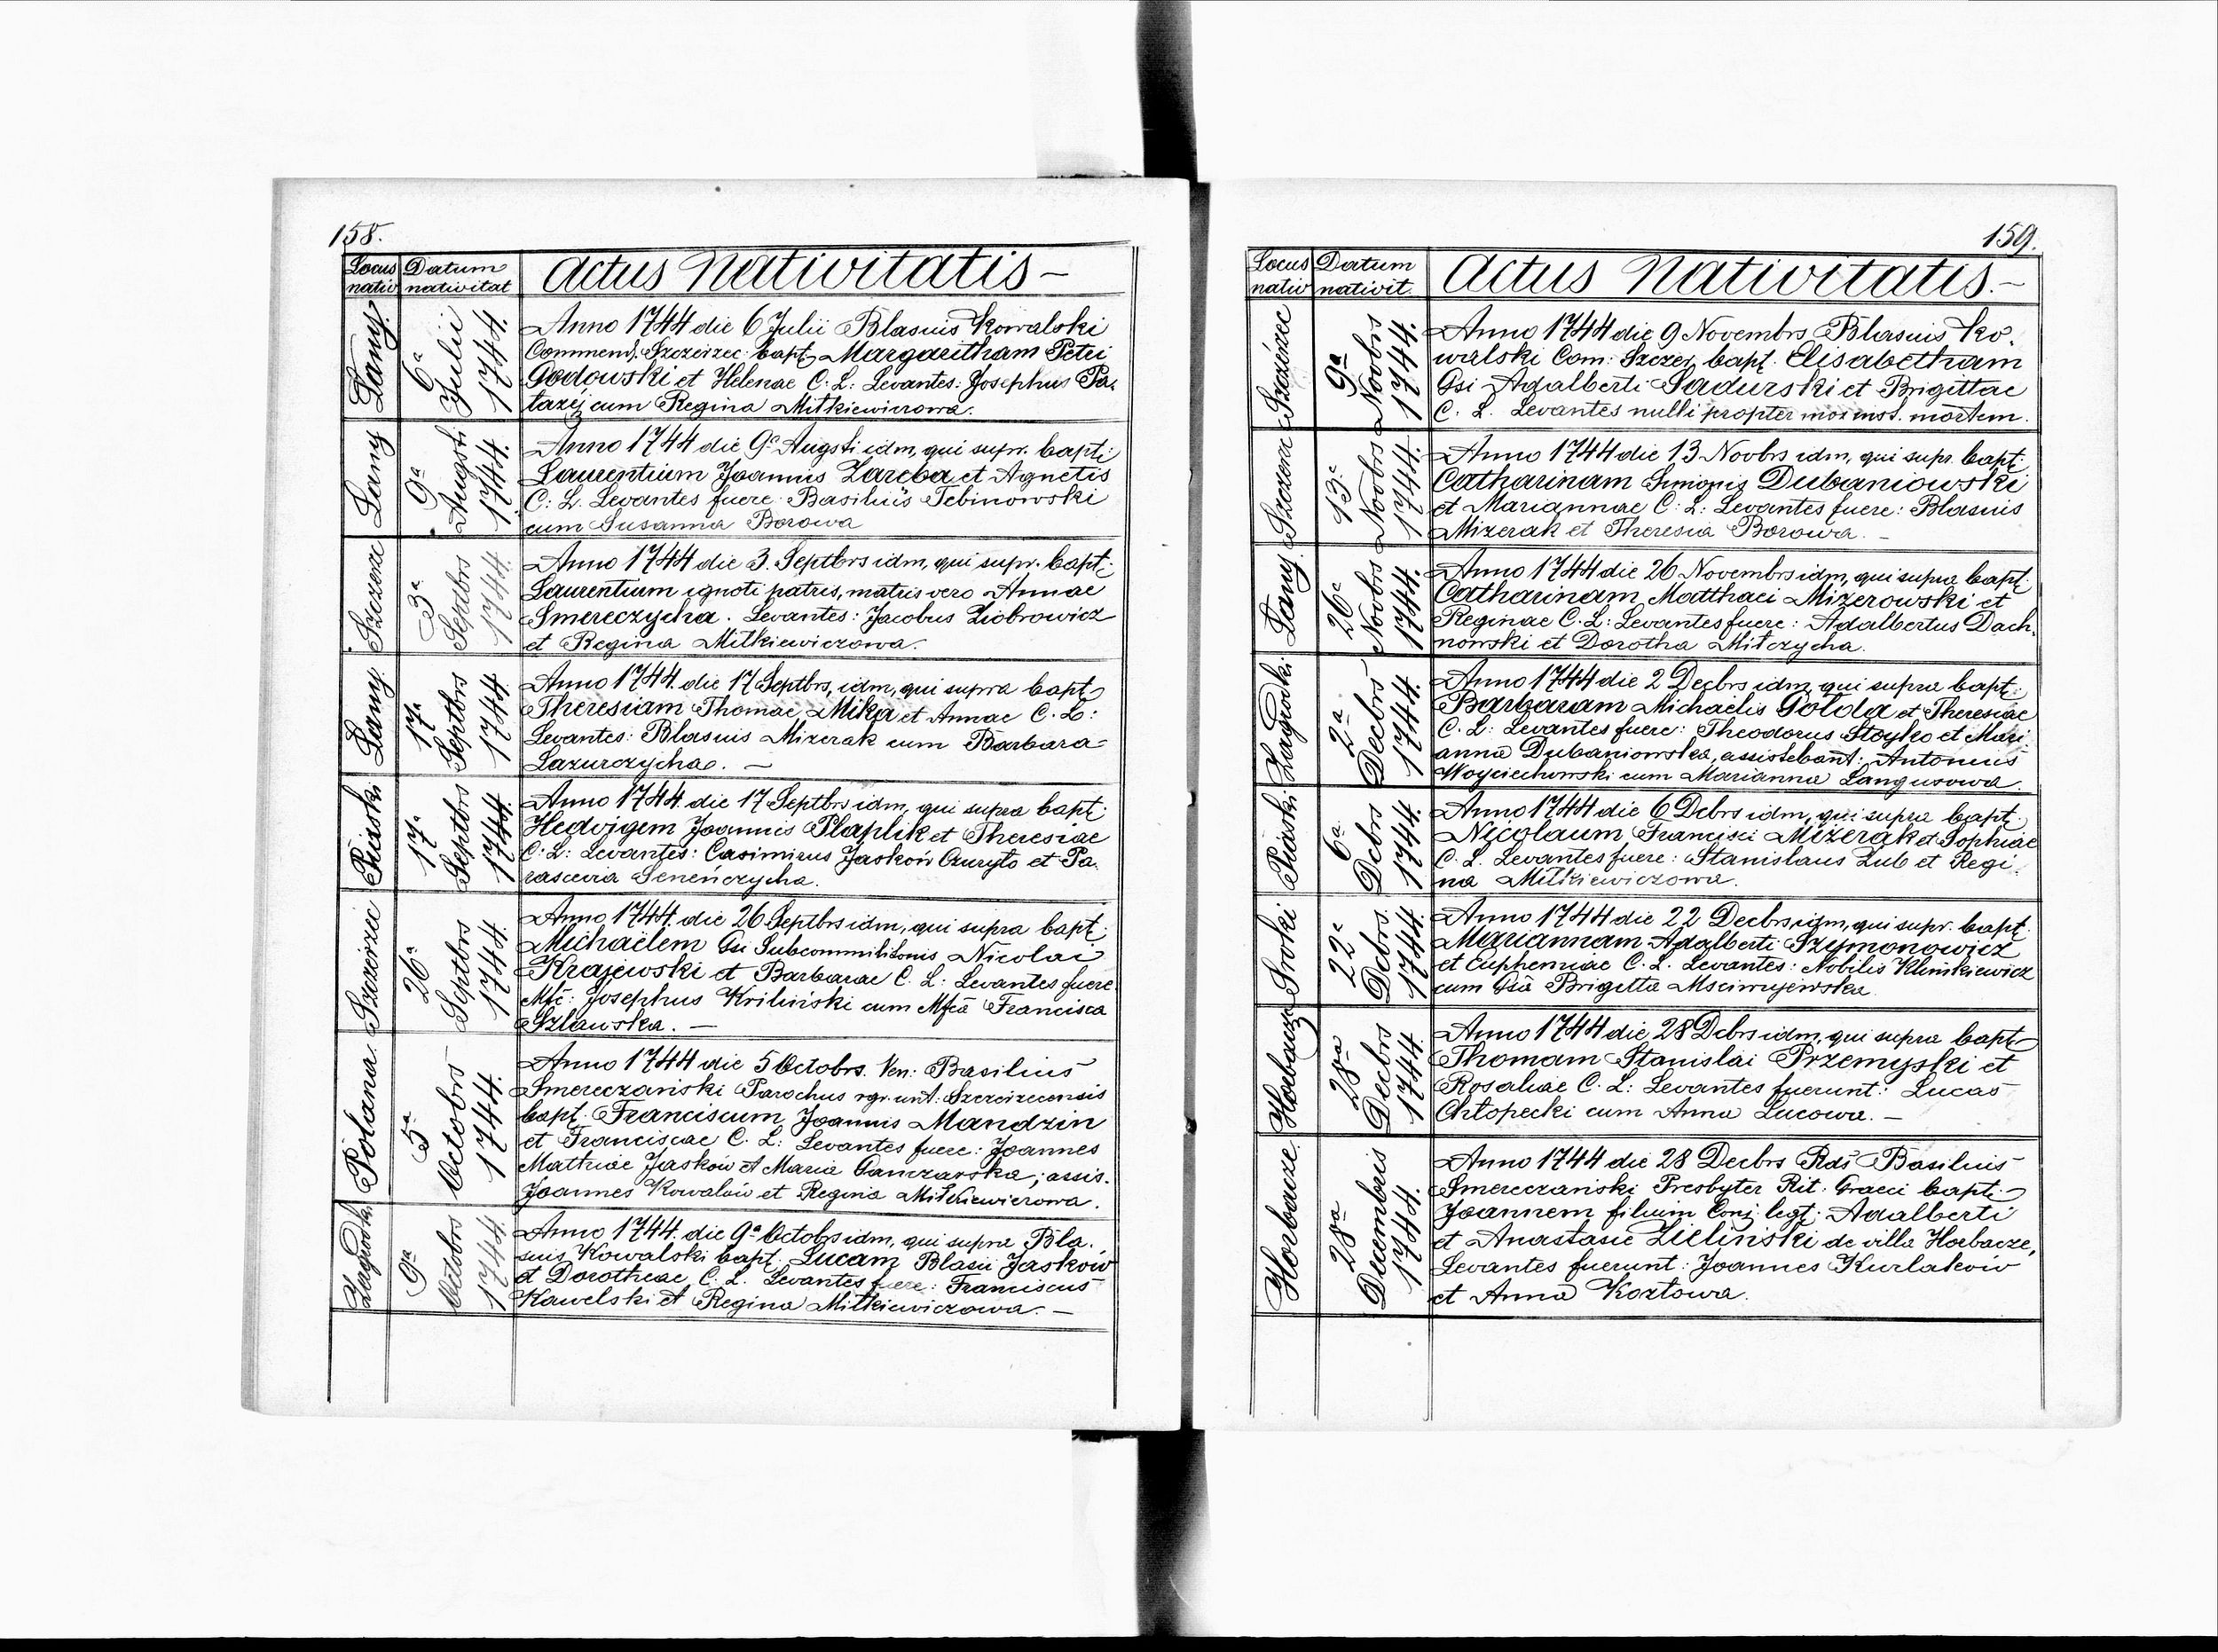 158.
Locus nativ
Datum nativitat
Actus Nativitatis –
Łany.
6ª Julii 1744.
Anno 1744 die 6 Julii Blasius Kowalski
Commend. Szczeirzec: bapt. Margaritham Petri
Godowski et Helenae C: L: Levantes: Josephus Pa-
tazij cum Regina Mitkiewiczowa.
Łany
9ª Augsti 1744.
Anno 1744 die 9ª Augsti idm, qui supr. bapt:
Laurentium Joannis Zareba et Agnetis
C: L. Levantes fuere Basiliüs Tebinowski
cum Susanna Borowa
Szczerze
3ª Septbrs 1744.
Anno 1744 die 3. Septbrs idm, qui supr. bapt:
Laurentium ignoti patris, matris vero Annae
Smereczycha. Levantes: Jacobus Ziobrowicz
et Regina Mitkiewiczowa.
Łany
17ª Septbrs 1744.
Anno 1744. die 17 Septbrs, idm, qui supra bapt
Theresiam Thomae Mika et Annae C. L:
Levantes: Blasius Mizerak cum Barbara
Lazurczycha. –
Piaski
17ª Septbrs 1744.
Anno 1744. die 17 Septbrs idm, qui supra bapt:
Hedvigem Joannis Plaplik et Theresiae
C: L: Levantes: Casimirus Jaskow Czuryło et Pa-
rascevia Seneńczycha.
Szczeirzec
26ª Septbrs 1744.
Anno 1744. die 26 Septbrs idm, qui supra bapt:
Michaëlem Gsi Subcommilitonis Nicolai
Krajewski et Barbarae C: L: Levantes fuere
Mfc: Josephus Kriliński cum Mfcā Francisca
Szlawska. –
Polana.
5ª Octobrs 1744.
Anno 1744 die 5 Octobrs. Ven: Basilius
Smereczański Parochus rgr. unt: Szczeirzecensis
bapt. Franciscum Joannis Mandzin
et Franciscae C. L: Levantes fuere: Joannes
Mathiae Jasków et Maria Ganczarska; assis.
Joannes Kowalów et Regina Mitkiewierowa.
Zagrodki
9ª Octobrs 1744.
Anno 1744. die 9ª Octobrs idm, qui supra Bla-
sius Kowalski bapt. Lucam Blasii Jaskow
et Dorotheae C. L. Levantes fuere: Franciscus
Kawelski et Regina Mitkiewiczowa. –
159.
Locus nativ
Datum nativit.
Actus Nativitatis. –
Szczerzec
9ª Novbrs 1744.
Anno 1744 die 9 Novembrs Blasius Ko-
walski Com: Szczer, bapt. Elisabetham
Gsi Adalberti Sadurski et Brigittae
C. L. Levantes nulli propter mox inst. mortem.
Szczerzec
13ª Novbrs 1744.
Anno 1744 die 13 Novbrs idm, qui supr. bapt:
Catharinam Simonis Dubaniowski
et Mariannae C: L: Levantes fuere: Blasius
Mizerak et Theresia Borowa. –
Łany
26ª Novbrs 1744.
Anno 1744 die 26 Novembrs idm, qui supra bapt.
Catharinam Matthaei Mizerowski et
Reginae C. L: Levantes fuere: Adalbertus Dach-
nowski et Dorotha Miłczycha.
Zagrodki.
2ª Decbrs 1744.
Anno 1744 die 2 Decbrs idm, qui supra bapt:
Barbaram Michaelis Golda et Theresiae
C. L: Levantes fuere: Theodorus Stoyko et Mari
anna Dubaniowska, assistebant: Antonius
Woyciechowski cum Marianna Langusowa.
Piaski
6ª Debrs 1744.
Anno 1744 die 6 Debrs idm, qui supra bapt:
Nicolaum Francisci Mizerak et Sophiae
C. L. Levantes fuere: Stanislaus Zub et Regi-
na Mitkiewiczowa.
Sroki
22ª Debrs. 1744.
Anno 1744 die 22 Decbrs idm, qui supr. bapt.
Mariannam Adalberti Szymonowicz
et Euphemiae C. L. Levantes: Nobilis Klimkiewicz
cum Gsā Brigitta Msciwujewska
Horbacze
28ª Decbrs 1744.
Anno 1744 die 28 Debrs idm, qui supra bapt
Thomam Stanislai Przemyski et
Rosaliae C. L: Levantes fuerunt: Lucas
Chłopecki cum Anna Lucowa. –
Horbacze.
28ª Decembris 1744.
Anno 1744 die 28 Decbrs Rds Basilius
Smereczański Presbyter Rit: Graeci bapt:
Joannem filium Conj. legt: Adalberti
et Anastasie Zieliński de villa Horbacze,
Levantes fuerunt: Joannes Kurlaków
et Anna Kozłowa.